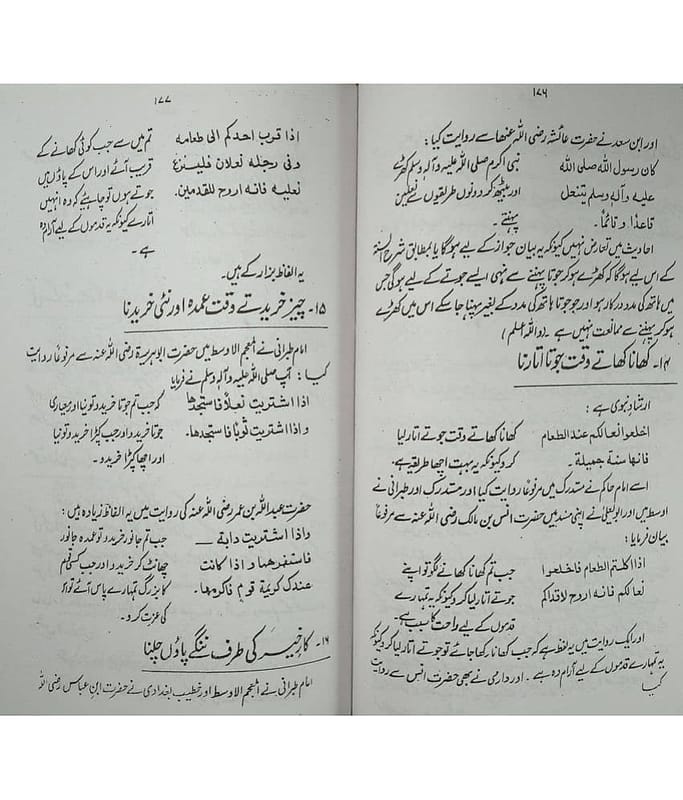 ۱۷۶
اور ابن سعد نے حضرت عائشہ رضی اللہ عنہا سے روایت کیا:
كان رسول الله صلى الله نبی اکرم صلی اللہ علیہ وآلہ وسلم کھڑے
عليه وآله وسلم يتنعل اور بیٹھ کر دونوں طریقوں سے نعلین
قاعدًا وقائمًا۔ پہنتے۔
احادیث میں تعارض نہیں کیونکہ یہ بیان جواز کے لیے ہوگا یا بمطابق شرح السنۃ
کے اس لیے ہوگا کہ کھڑے ہو کر جوتا پہننے سے نہی ایسے جوتے کے لیے ہوگی جس
میں ہاتھ کی مدد درکار ہو اور جو جوتا ہاتھ کی مدد کے بغیر پہنا جا سکے اس میں کھڑے
ہو کر پہننے سے ممانعت نہیں ہے (واللہ اعلم)
۱۴۔ کھانا کھاتے وقت جوتا اتارنا
ارشاد نبوی ہے:
اخلعوا نعالكم عند الطعام کھانا کھاتے وقت جوتے اتار لیا
فانها سنة جميلة۔ کرو کیونکہ یہ بہت اچھا طریقہ ہے۔
اسے امام حاکم نے مستدرک میں مرفوعًا روایت کیا اور مستدرک اور طبرانی نے
اوسط میں اور ابو یعلیٰ نے اپنی مسند میں حضرت انس بن مالک رضی اللہ عنہ سے مرفوعًا
بیان فرمایا:
اذا اكلتم الطعام فاخلعوا جب تم کھانا کھانے لگو تو اپنے
نعالكم فانه اروح لاقدامكم جوتے اتار لیا کرو کیونکہ یہ تمہارے
قدموں کے لیے راحت کا سبب ہے۔
اور ایک روایت میں یہ لفظ ہے کہ جب کھانا رکھا جائے تو جوتے اتار لیا کرو کیونکہ
یہ تمہارے قدموں کے لیے آرام دہ ہے۔ اور دارمی نے بھی حضرت انس سے روایت
کیا
۱۷۷
اذا قرب احدكم الى طعامه تم میں سے جب کوئی کھانے کے
وفى رجليه نعلان فلينزع قریب آئے اور اس کے پاؤں میں
نعليه فانه اروح للقدمين۔ جوتے ہوں تو چاہیئے کہ وہ انہیں
اتارے کیونکہ یہ قدموں کے لیے آرام دہ
ہے۔
یہ الفاظ بزار کے ہیں۔
۱۵۔ چیز خریدتے وقت عمدہ اور نئی خریدنا
امام طبرانی نے المعجم الاوسط میں حضرت ابوہریرۃ رضی اللہ عنہ سے مرفوعًا روایت
کیا: آپ صلی اللہ علیہ وآلہ وسلم نے فرمایا
اذا اشتريت نعلاً فاستجدها کہ جب تم جوتا خریدو تو نیا اور معیاری
واذا اشتريت ثوبًا فاستجدها۔ جوتا خریدو اور جب کپڑا خریدو تو نیا
اور اچھا کپڑا خریدو۔
حضرت عبداللہ بن عمر رضی اللہ عنہ کی روایت میں یہ الفاظ زیادہ ہیں:
واذا اشتريت دابة جب تم جانور خریدو تو عمدہ جانور
فاستفرهها واذا كانت چھانٹ کر خریدو اور جب کسی قوم
عندك كريمة قوم فاكرمها۔ کا بزرگ تمہارے پاس آئے تو اس
کی عزت کرو۔
۱۶۔ کارِ خیر کی طرف ننگے پاؤں چلنا
امام طبرانی نے المعجم الاوسط اور خطیب بغدادی نے حضرت ابن عباس رضی اللہ